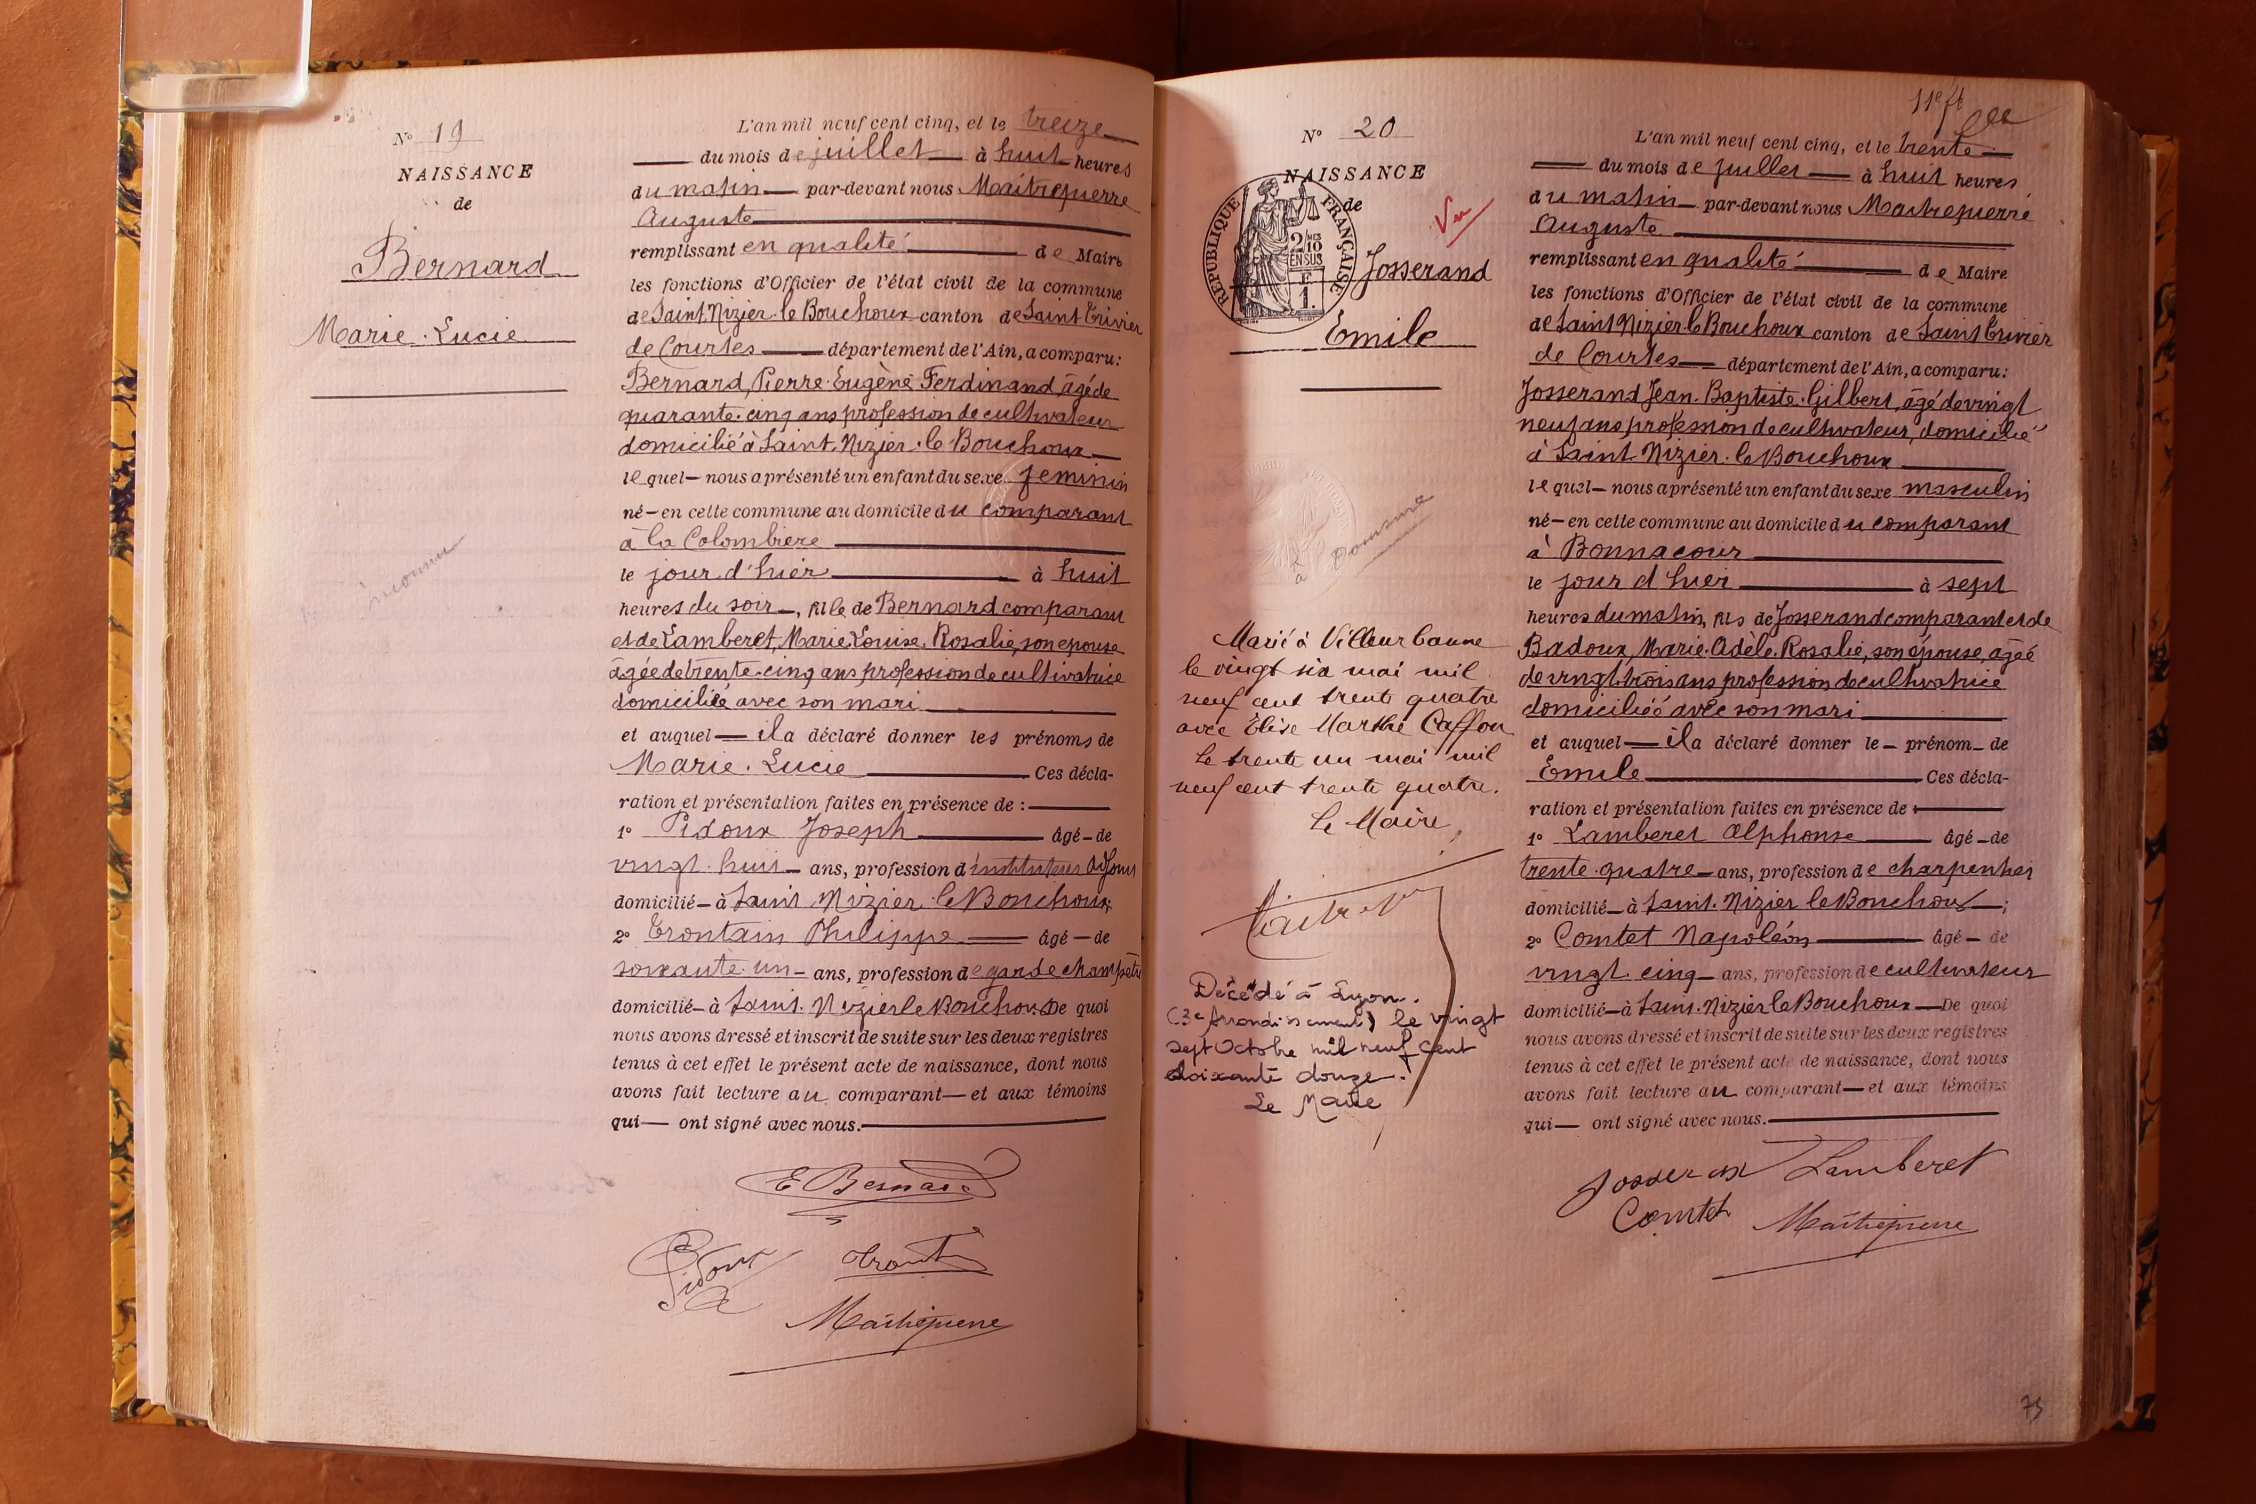 N° 19
NAISSANCE
de
Bernard
Marie. Lucie
L'an mil neuf cent cinq, et le treize
du mois de juillet à huit heures
du matin par-devant nous Maitrepierre
Auguste
remplissant en qualité de Maire
les fonctions d'Officier de l'état civil de la commune
de Saint. Nizier. le Bouchoux canton de Saint Trivier
de Courtes département de l'Ain, a comparu:
Bernard, Pierre. Eugène Ferdinand, âgé de
quarante. cinq ans profession de cultivateur
domicilié à Saint. Nizier. le Bouchoux
lequel nous a présenté un enfant du sexe feminin
né en cette commune au domicile du comparant
à la Colombière
le jour d'hier à huit
heures du soir, fille de Bernard comparant
et de Lamberet, Marie. Louise. Rosalie, son epouse
âgée de trente. cinq ans profession de cultivatrice
domiciliée avec son mari
et auquel il a déclaré donner les prénoms de
Marie. Lucie Ces décla-
ration et présentation faites en présence de :
1° Pidoux Joseph âgé de
vingt. huit ans, profession d'instituteur adjoint
domicilié à Saint Nizier. le Bouchoux
2° Trontain Philippe âgé de
soixante un ans, profession de garde champêtre
domicilié à Saint. Nizier le Bouchoux De quoi
nous avons dressé et inscrit de suite sur les deux registres
tenus à cet effet le présent acte de naissance, dont nous
avons fait lecture au comparant et aux témoins
qui ont signé avec nous.
E Bernard
Pidoux
Maitrepierre
N° 20
NAISSANCE
de
Vu
REPUBLIQUE FRANÇAISE
2/10
EN SUS
1.
Josserand
Emile
Marié à Villeurbanne
le vingt six mai mil
neuf cent trente quatre
avec Elise Marthe Caffon
Le trente un mai mil
neuf cent trente quatre.
Le Maire
Décédé à Lyon.
(3e Arrondissement) le vingt
sept Octobre mil neuf cent
soixante douze.
Le Maire
L'an mil neuf cent cinq, et le trente
du mois de juillet à huit heures
du matin par-devant nous Maitrepierre
Auguste
remplissant en qualité de Maire
les fonctions d'Officier de l'état civil de la commune
de Saint Nizier. le Bouchoux canton de Saint Trivier
de Courtes département de l'Ain, a comparu:
Josserand Jean. Baptiste. Gilbert, âgé de vingt
neuf ans profession de cultivateur, domicilié
à Saint. Nizier. le Bouchoux
lequel nous a présenté un enfant du sexe masculin
né en cette commune au domicile du comparant
à Bonnacour
le jour d'hier à sept
heures du matin, fils de Josserand comparant et de
Badoux, Marie. Adèle. Rosalie, son épouse, âgée
de vingt. trois ans profession de cultivatrice
domiciliée avec son mari
et auquel il a déclaré donner le prénom de
Emile Ces décla-
ration et présentation faites en présence de
1° Lamberet Alphonse âgé de
trente. quatre ans, profession de charpentier
domicilié à Saint. Nizier le Bouchoux ;
2° Comtet Napoléon âgé de
vingt. cinq ans, profession de cultivateur
domicilié à Saint. Nizier le Bouchoux De quoi
nous avons dressé et inscrit de suite sur les deux registres
tenus à cet effet le présent acte de naissance, dont nous
avons fait lecture au comparant et aux témoins
qui ont signé avec nous.
Josserand Lamberet
Comtet Maitrepierre
75